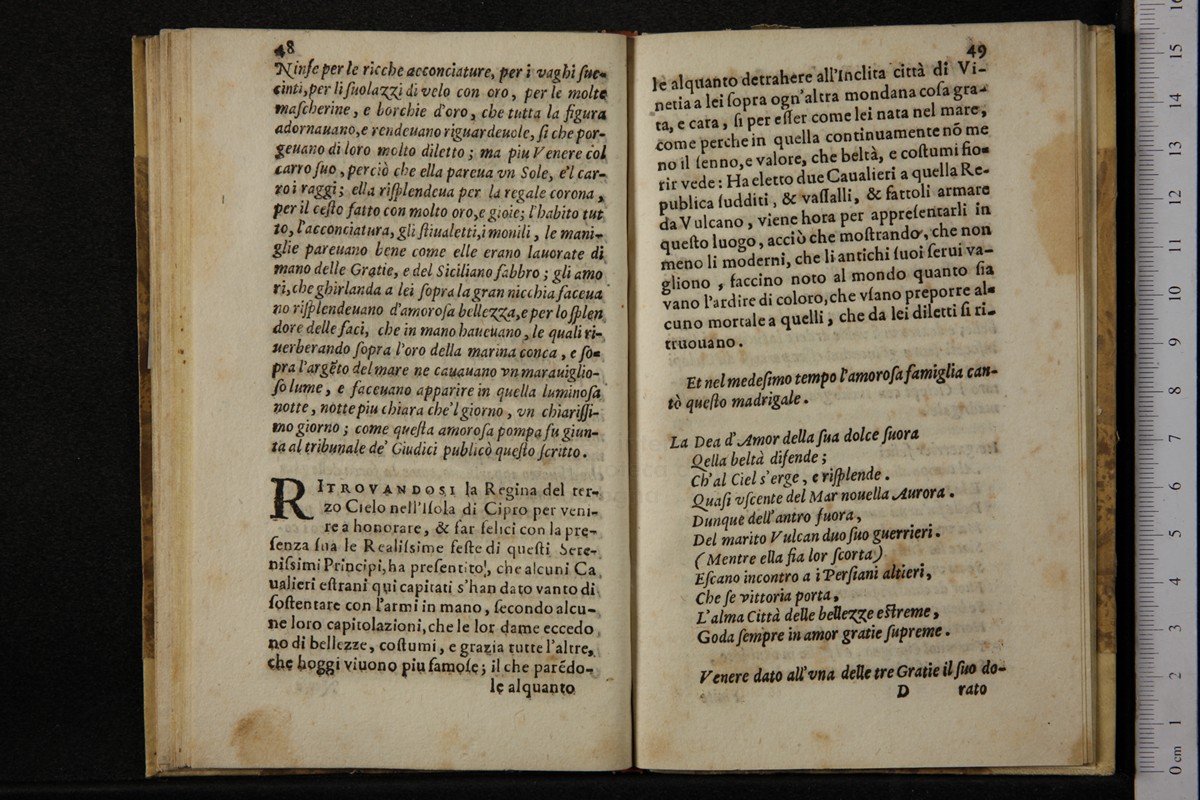 48
Ninfe per le ricche acconciature, per i vaghi ſuc-
cinti, per li ſuolazzi di velo con oro, per le molte
maſcherine, e borchie d'oro, che tutta la figura
adornauano, e rendeuano riguardeuole, ſi che por-
geuano di loro molto diletto; ma piu Venere col
carro ſuo, perciò che ella pareua vn Sole, e'l car-
ro i raggi; ella riſplendeua per la regale corona,
per il ceſto fatto con molto oro, e gioie; l'habito tut
to, l'acconciatura, gli ſtiualetti, i monili, le mani-
glie pareuano bene come elle erano lauorate di
mano delle Gratie, e del Siciliano fabbro; gli amo
ri, che ghirlanda a lei ſopra la gran nicchia faceua
no riſplendeuano d'amoroſa bellezza, e per lo ſplen
dore delle faci, che in mano haueuano, le quali ri-
uerberando ſopra l'oro della marina conca, e ſo-
pra l'argẽto del mare ne cauauano vn marauiglio-
ſo lume, e faceuano apparire in quella luminoſa
notte, notte piu chiara che'l giorno, vn chiariſſi-
mo giorno; come queſta amoroſa pompa fu giun-
ta al tribunale de' Giudici publicò queſto ſcritto.
RITROVANDOSI la Regina del ter-
zo Cielo nell'Iſola di Cipro per veni-
re a honorare, & far felici con la pre-
ſenza ſua le Realiſsime feſte di queſti Sere-
niſsimi Principi, ha preſentito, che alcuni Ca
ualieri eſtrani qui capitati s'han dato vanto di
ſoſtentare con l'armi in mano, ſecondo alcu-
ne loro capitolazioni, che le lor dame eccedo
no di bellezze, coſtumi, e grazia tutte l'altre,
che hoggi viuono piu famoſe; il che parẽdo-
le alquanto
49
le alquanto detrahere all'Inclita città di Vi-
netia a lei ſopra ogn'altra mondana coſa gra-
ta, e cara, ſi per eſſer come lei nata nel mare,
come perche in quella continuamente nõ me
no il ſenno, e valore, che beltà, e coſtumi fio-
rir vede: Ha eletto due Caualieri a quella Re-
publica ſudditi, & vaſſalli, & fattoli armare
da Vulcano, viene hora per appreſentarli in
queſto luogo, acciò che moſtrando, che non
meno li moderni, che li antichi ſuoi ſerui va-
gliono, faccino noto al mondo quanto ſia
vano l'ardire di coloro, che vſano preporre al-
cuno mortale a quelli, che da lei diletti ſi ri-
truouano.
Et nel medeſimo tempo l'amoroſa famiglia can-
tò queſto madrigale.
La Dea d'Amor della ſua dolce ſuora
Qella beltà difende;
Ch'al Ciel s'erge, e riſplende.
Quaſi vſcente del Mar nouella Aurora.
Dunque dell'antro fuora,
Del marito Vulcan duo ſuo guerrieri.
(Mentre ella ſia lor ſcorta)
Eſcano incontro a i Perſiani altieri,
Che ſe vittoria porta,
L'alma Città delle bellezze eſtreme,
Goda ſempre in amor gratie ſupreme.
Venere dato all'vna delle tre Gratie il ſuo do-
D rato
0 cm 1 2 3 4 5 6 7 8 9 10 11 12 13 14 15 16